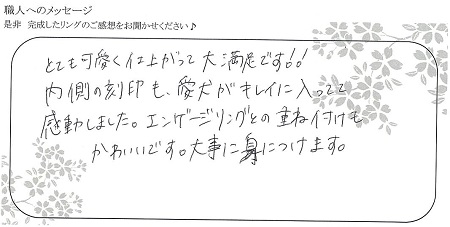 職人へのメッセージ
是非 完成したリングのご感想をお聞かせください♪
とても可愛く仕上がって大満足です!!
内側の刻印も、愛犬がキレイに入ってて
感動しました。エンゲージリングとの重ね付けも
かわいいです。大事に身につけます。